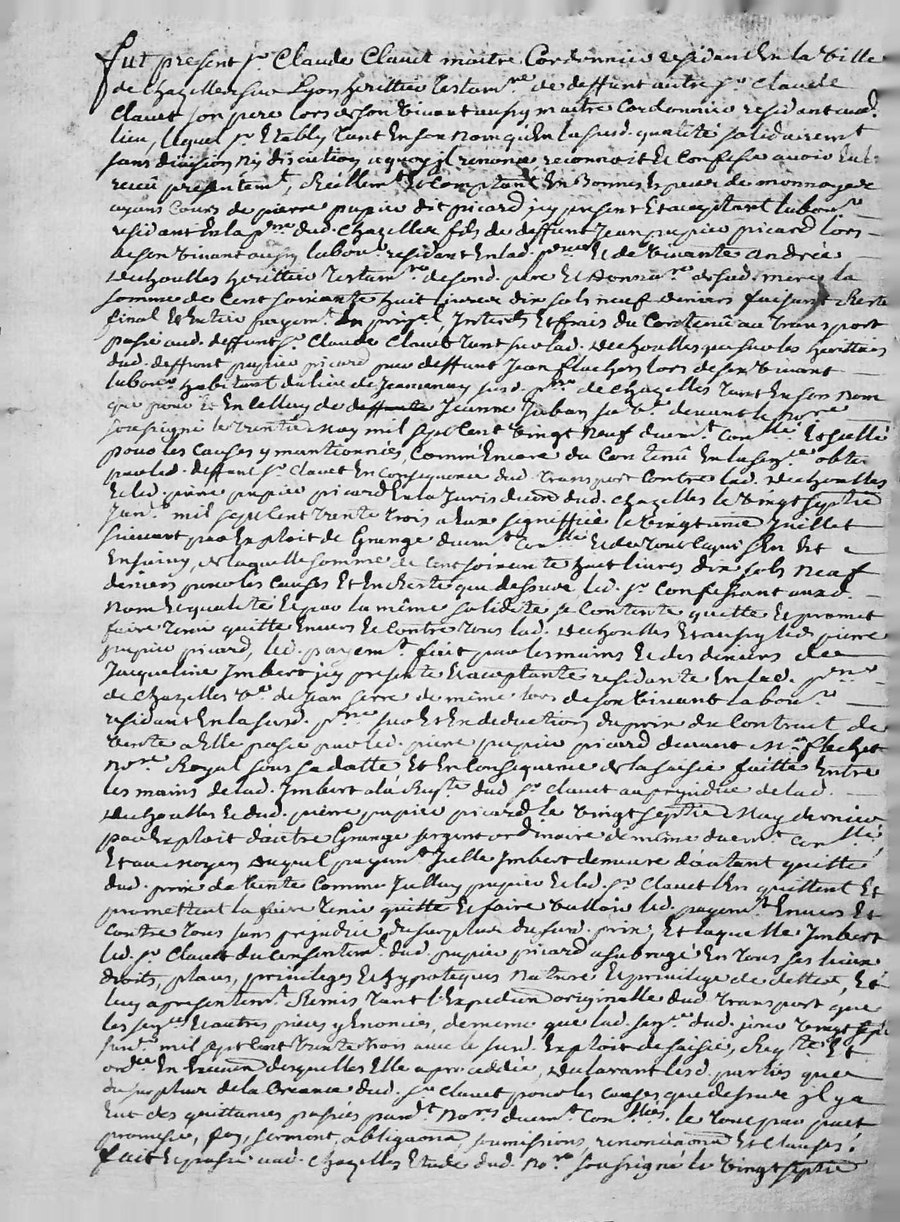 fut present sr Claude Clavet maitre Cordonnier residant En la Ville
de Chazelles sur Lyon heritier testamre de deffunt autre sr Claude
Clavet son pere lors de son vivant aussy maitre Cordonnier residant aud.
lieu, lequel sr Etably tant En son nom qu'En la susd. qualité solidairement
sans division ny discution a quoy il renonce reconnoit Et Confesse avoir Eu Et
receu presentemt, Réellemt Et Comptant En Bonnes Especes de monnoye
ayant Cours de pierre pupier dit picard icy present Et acceptant labourr
residant En la psse dud. Chazelles fils de deffunt Jean pupier picard lors
de son vivant aussy labourr residant En lad. psse Et de vivante andrée
heritier testamre de sond. pere Et de sad. mere la
somme de Cent soixante huit livres dix sols neuf deniers faisant Reste
final Et Entier payemt En prinpl, Interets Et frais du Contenu au transport
passé aud. deffunt sr Claude Clavet tant sur lad. que sur les heritiers
dud. deffunt pupier picard par deffunt Jean lors de son vivant
labourr habitant du lieu de susd. psse de Chazelles tant En son nom
que pour Et En Celluy de Jeanne sa ve devant le nore
soussigné le trente May mil sept Cent vingt neuf duemt conllé Et scellé
pour les Causes y mantionnées, Comm'Encore du Contenu En la sence obte
par led. deffunt sr Clavet En Consequence dud. transport Contre lad.
Et led. pierre pupier picard En la Jurisdiction dud. Chazelles le vingt septie
Janr mil sept Cent trente trois a Eux signiffiée le vingtieme Juillet
suivant par Exploit de Grange duemt conllé Et de tout Ce qui s'En Est
Ensuivy, de laquelle somme de Cent soixante huit livres dix sols neuf
deniers pour les Causes Et En Reste que dessus led. sr Confessant auxd.
nom Et qualité Et par la même solidité se Contente quitte Et promet
faire tenir quitte Envers Et Contre tous lad. Et aussy led. pierre
pupier picard, led. payemt fait par les mains Et des deniers de
Jacqueline Imbert icy presente Et acceptante residante En lad. psse
de Chazelles ve de Jean serre de même lors de son vivant labourr
residant En la susd. psse sur Et En deduction du prix du Contract de
vente a Elle passé par led. pierre pupier picard devant Me flechet
nore Royal sous sa datte Et En Consequence de la saisie faitte Entre
les mains de lad. Imbert a la Reqte dud. sr Clavet au prejudice de lad.
Et dud. pierre pupier picard le vingt septie May dernier
par Exploit d'autre Grange sergent ordinaire de même duemt conllé
Et au moyen duquel payemt Jcelle Imbert demeure d'autant quitte
dud. prix de vente Comme Jcelluy pupier Et led. sr Clavet l'En quittent Et
promettent la faire tenir quitte Et faire valloir led. payemt Envers Et
Contre tous sans prejudice du surplus du susd. prix, Et laquelle Imbert
led. sr Clavet du Consentemt dud. pupier picard a subrogé En tous ses lieux
droits, place, privileges Et hypoteques nature Et privilege de dette, Et
luy a presentemt Remis tant l'Expedition originalle dud. transport que
les sen Et autres pieces y Enoncées, de meme que lad. sence dud. jour vingt septie
Janr mil sept Cent trente trois avec le susd. Exploit de saisie, Reqte Et
ordce En Execuon desquelles Elle a procedé, declarant lesd. parties que
du surplus de la Creance dud. sr Clavet pour les Causes que dessus il y a
Eut des quittances passées pardt nores duemt conllées. le tout par pact
promesse, foy, serment, obligaons, soumissions, renonciaons Et Clauses.
fait Et passé aud. Chazelles Etude dud. nore soussigné le vingt septie